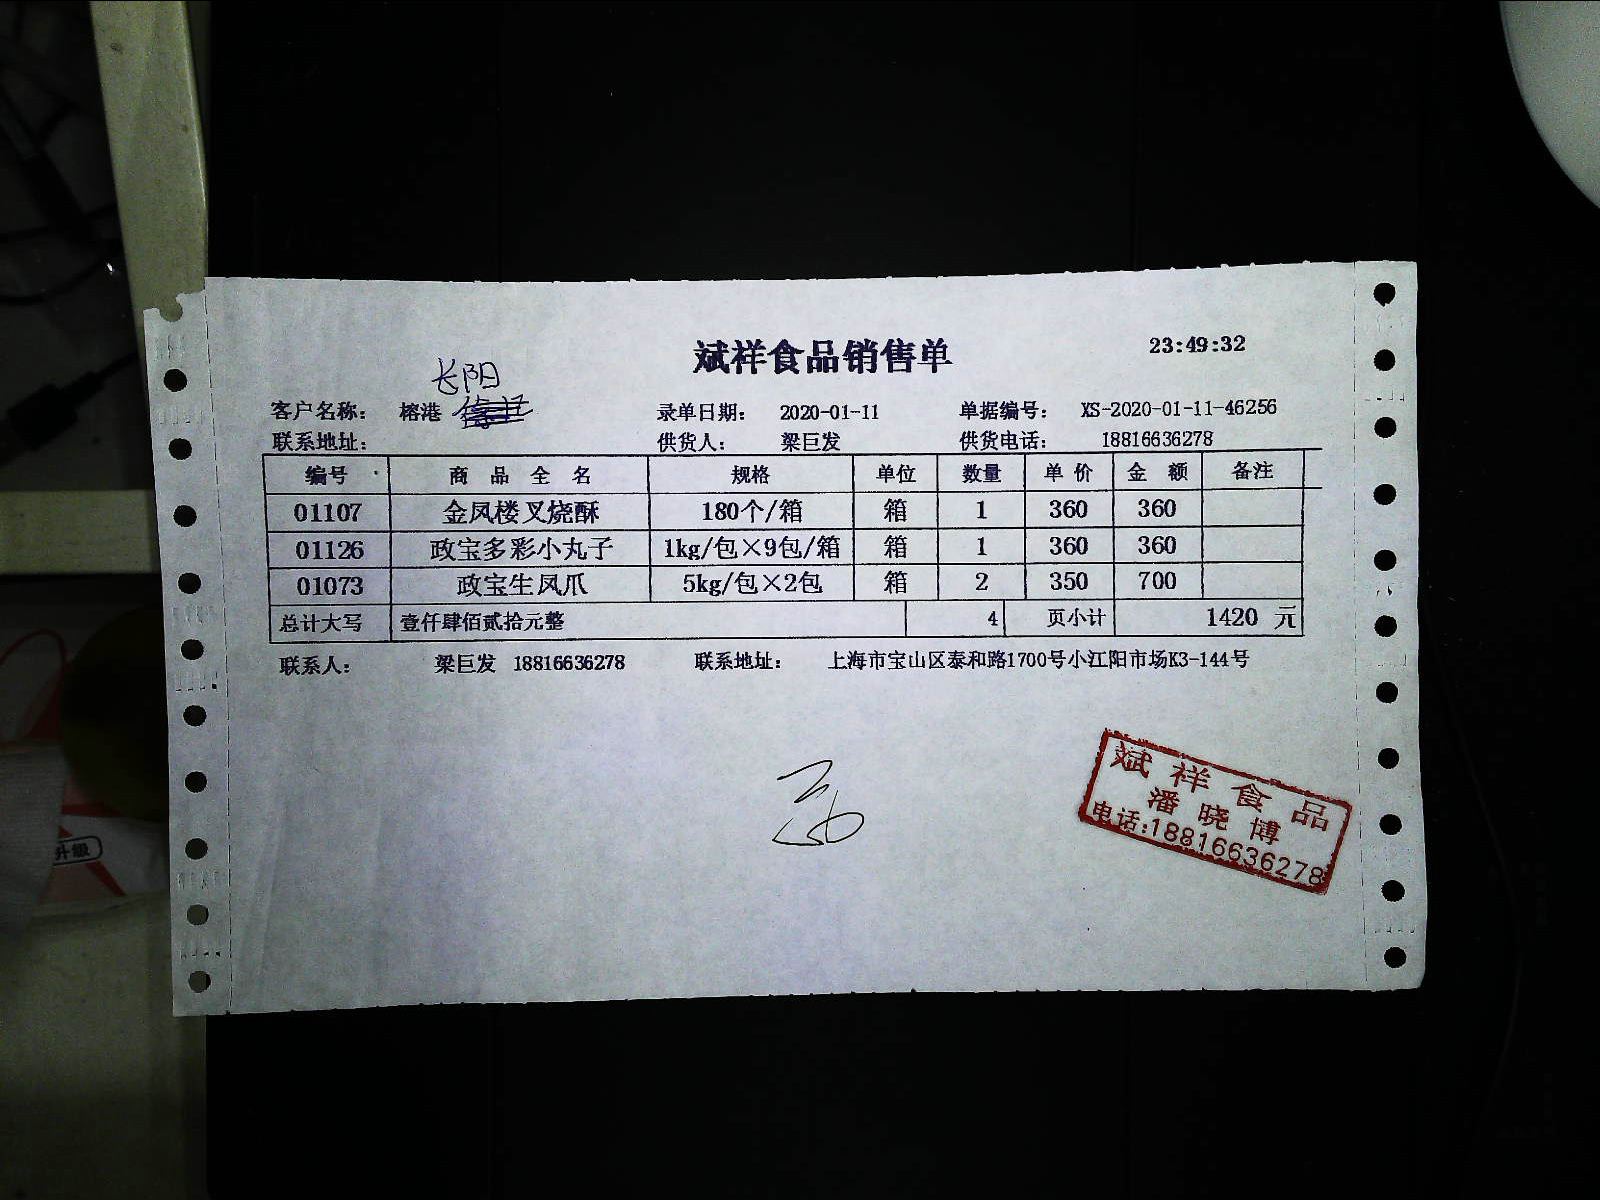 斌祥食品销售单 23:49:32
长阳
客户名称: 榕港 录单日期: 2020-01-11 单据编号: XS-2020-01-11-46256
联系地址: 供货人: 梁巨发 供货电话: 18816636278
编号 商品全名 规格 单位 数量 单价 金额 备注
01107 金凤楼叉烧酥 180个/箱 箱 1 360 360
01126 政宝多彩小丸子 1kg/包×9包/箱 箱 1 360 360
01073 政宝生凤爪 5kg/包×2包 箱 2 350 700
总计大写 壹仟肆佰贰拾元整 4 页小计 1420 元
联系人: 梁巨发 18816636278 联系地址: 上海市宝山区泰和路1700号小江阳市场K3-144号
斌祥食品
潘晓博
电话:18816636278
升級